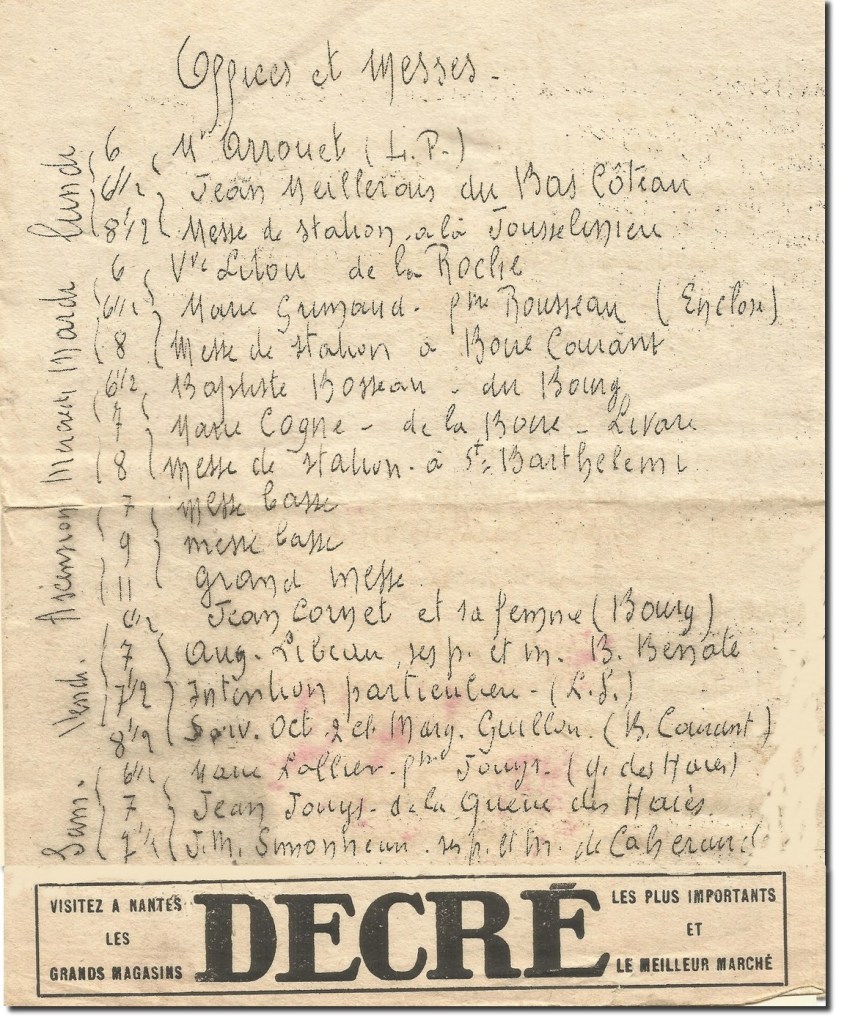 Offices et Messes -
Lundi
6 Mr Arrouet (L.P.)
6 1/2 Jean Meilleraus du Bas Côteau
8 1/2 Messe de station à la Jousselinière
Mardi
6 Vve Litou de la Roche
6 1/2 Marie Grimaud - pme Rousseau (Enclose)
8 Messe de station à Boire Courant
Mercredi
6 1/2 Baptiste Bosseau - du Bourg
7 Marie Cogne - de la Boire - Livare
8 Messe de station - à St Barthelemi
Ascension
7 messe basse
9 messe basse
11 grand messe
Vend.
6 1/2 Jean Cornet et sa femme (Bourg)
7 Aug. Libeau, ses p. et m. B. Benâte
7 1/2 Intention particulière - (L.L.)
8 1/2 Serv. Oct. 2 et Marg. Guillou. (B. Courant)
Sam.
6 1/2 Marie Lollier - pme Jouys. (q. des Haies)
7 Jean Jouys - de la Queue des Haies.
7 1/2 J.M. Simonneau. ses p. et m. de Caheraud
VISITEZ A NANTES
LES
GRANDS MAGASINS
DECRÉ
LES PLUS IMPORTANTS
ET
LE MEILLEUR MARCHÉ